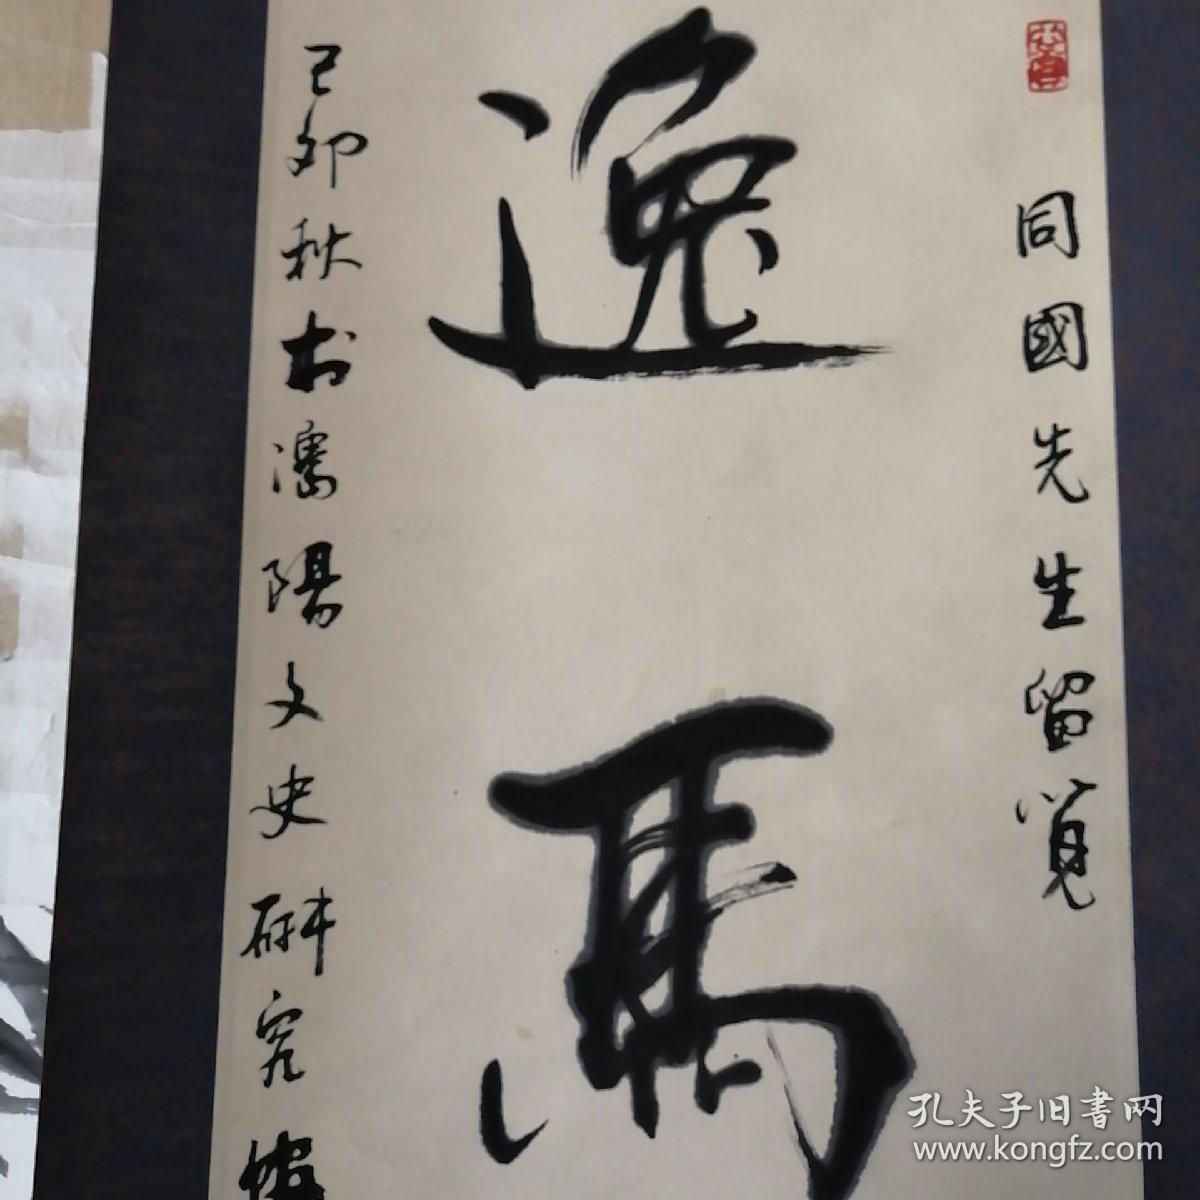 同國先生留覽
逸馬
己卯秋於瀋陽文史研究館
孔夫子旧書网
www.kongfz.com